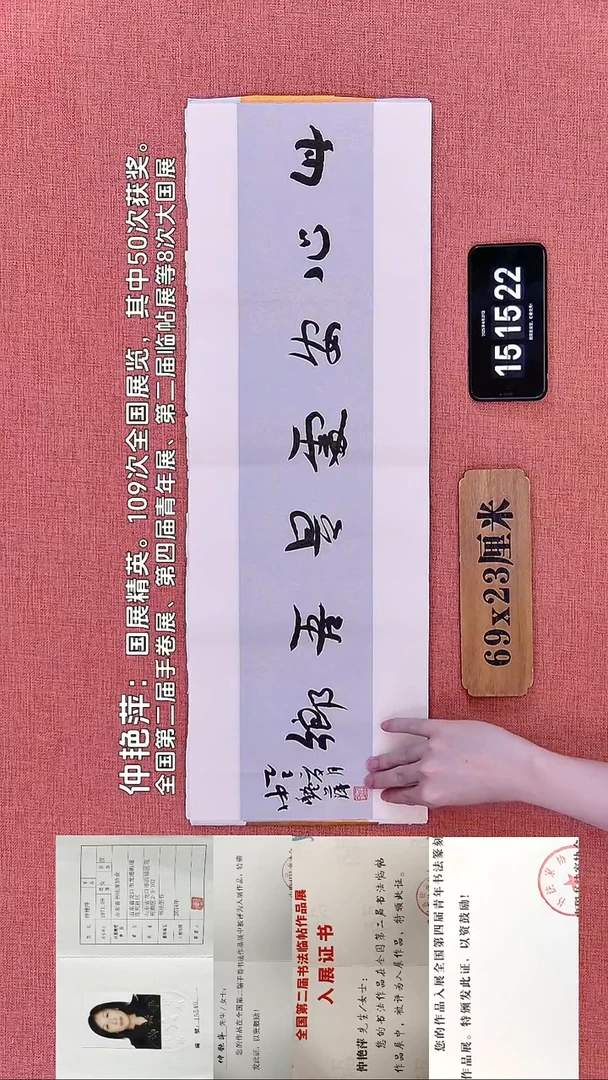 仲艳萍：国展精英。109次全国展览，其中50次获奖。
全国第二届手卷展、第四届青年展、第二届临帖展等8次大国展
此心安處是吾鄉
15 15 22
69x23厘米
仲艳萍 先生/女士：
您的作品在全国第二届手卷书法作品展中被评为入展作品，特颁
发此证，以资鼓励!
全国第二届书法临帖作品展
入展证书
仲艳萍 先生/女士：
您的书法作品在全国第二届书法临帖
作品展中，被评为入展作品，特颁此证。
您的作品入展全国第四届青年书法篆刻
作品展。特颁发此证，以资鼓励!